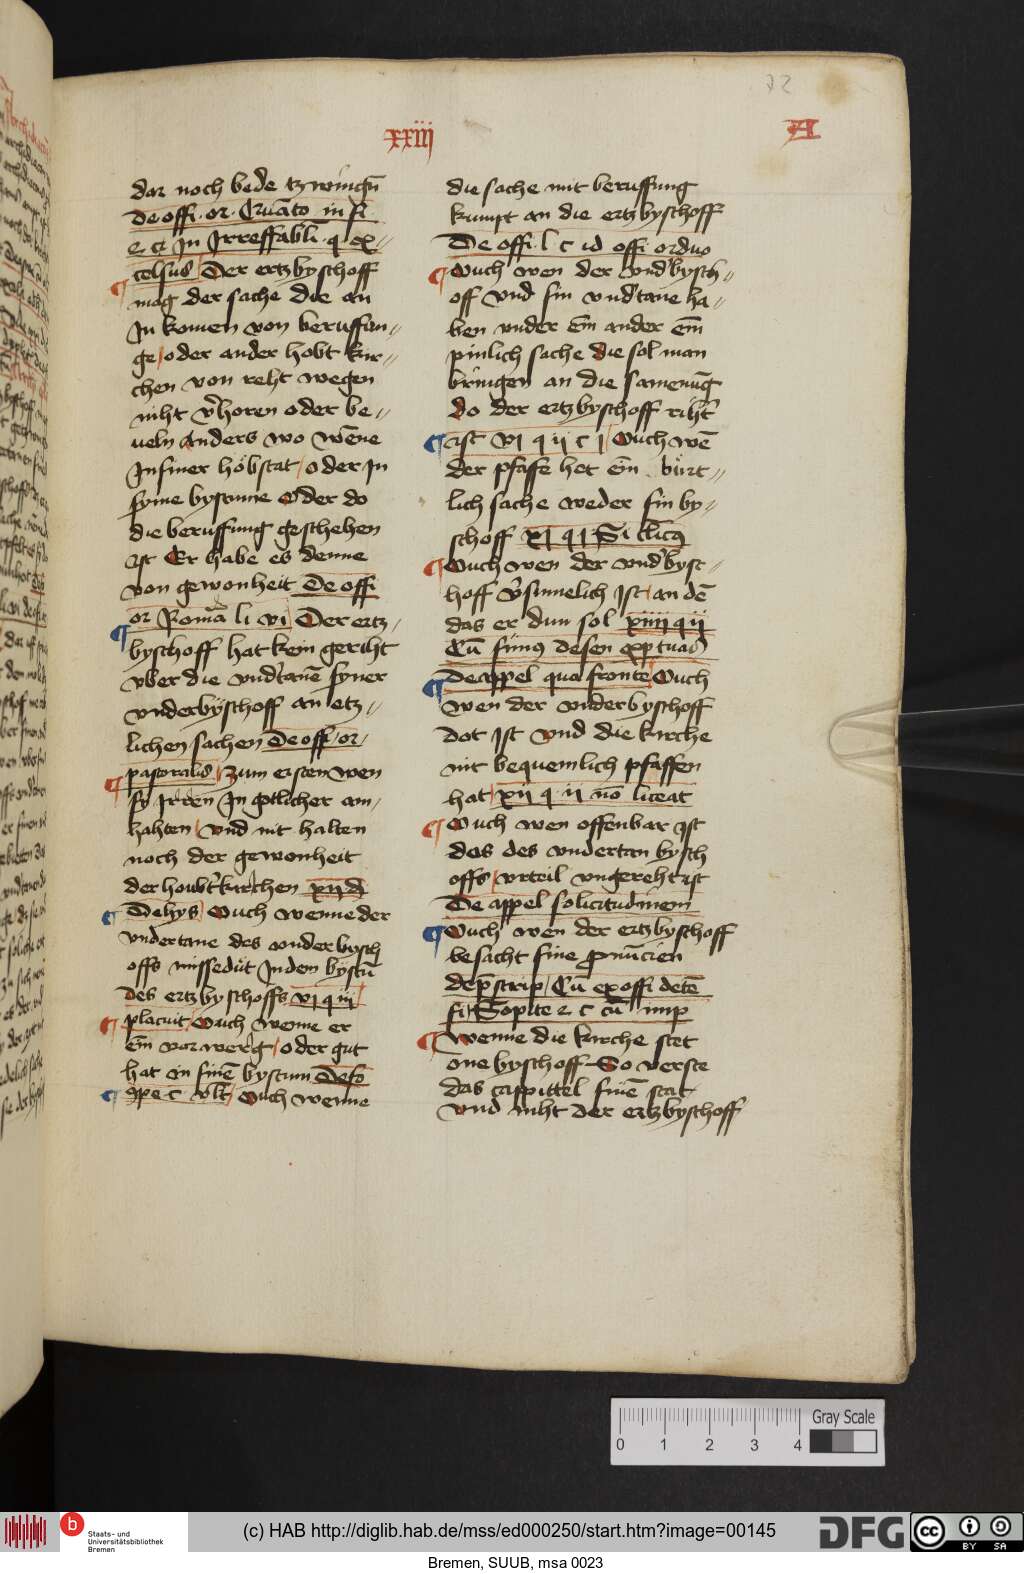 72
xxiij
A
dar noch bede tzwingñ
De offi . or . Cuāto in fi
e c In Irreffabli . q ex
celsus Der ertzbyschoff
mag der sache die an
In komen von beruffun
ge oder ander hobt kir
chen von reht wegen
niht v̓horen oder be
ueln anders wo wēne
In siner höbstat oder In
syme bystume Oder do
die beruffung geschehen
ist Er habe es denne
von gewonheit De offi
or Romā li vi Der ertz
byschoff hat kein geriht
vber die vnd̓tanē syner
vnderbyschoff an etz
lichen sachen De off or
pastoralis Zum ersten wen
sy Irren In gotlicher am
hahten vnd nit halten
noch der gewonheit
der houbt̓kirchen xij d
De hys Ouch wenne der
vndertane des vnderbysch
offs missedüt In dem bystū
des ertzbyschoffs vj q iij
placuit Ouch wenne er
ein vorwerg oder gut
hat in sinē bystum De fo
9pe c vlt Ouch wenne
die sache mit beruffung
kumpt an die ertzbyschoff
De offi l c id offi orduo
Ouch wen der vnd̓bysch
off vnd sin vnd̓tane ha
ben vnder eim ander eim
pinlich sache die sol man
bringen an die samenūg
do der ertzbyschoff riht̓
ist vj q ij c j Ouch wē
der pfaffe het ein bürt
lich sache weder sin by
schoff xj q j Si cl̄ic9
Ouch wen der vnd̓bysc
hoff v̓sinnelich Ist an dē
das er dun sol xiiij q ij
Cū simus desen
De appel qua fronte Ouch
wen der vnderbyschoff
dot Ist vnd die kirche
nit bequemlich pfaffen
hat xij q ij nō liceat
Ouch wen offenbar ist
das des vndertan bysch
offs vrteil vngereht ist
De appel solicitudinem
Ouch wen der ertzbyschoff
besacht sine ꝓuincien
de p̄scrip Cū ex offi detē
fi Sopite e c cū imp
Wenne die kirche stet
one byschoff So verste
das cappittel sinē stat
vnd niht der ertzbyschoff
Gray Scale
0 1 2 3 4
b Staats- und
Universitätsbibliothek
Bremen
(c) HAB http://diglib.hab.de/mss/ed000250/start.htm?image=00145
DFG
cc BY SA
Bremen, SUUB, msa 0023